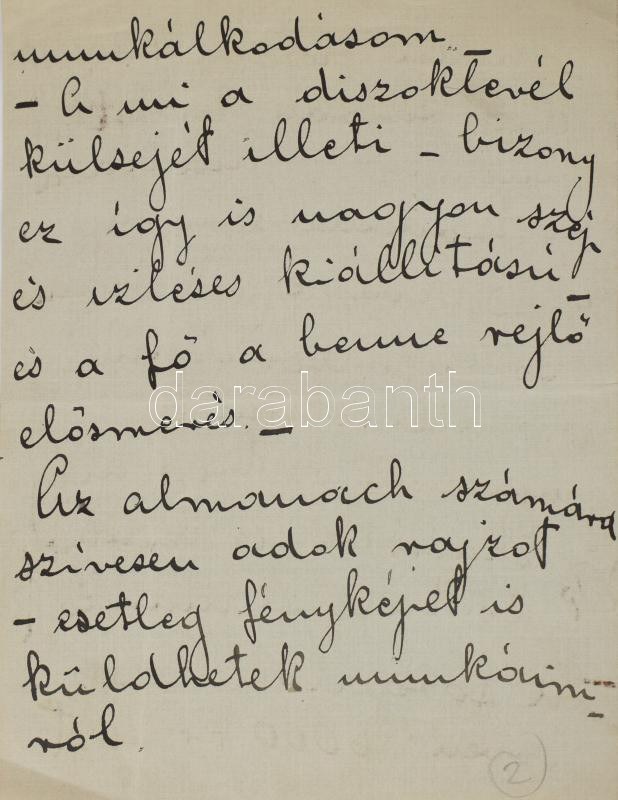 munkálkodásom –
– A mi a diszoklevél
külsejét illeti – bizony
ez így is nagyon szép
és izléses kiállitású –
és a fő a benne rejlő
elősmerés. –
Az almanach számára
szívesen adok rajzot
– esetleg fényképet is
küldhetek munkáim-
ról.
2
darabanth